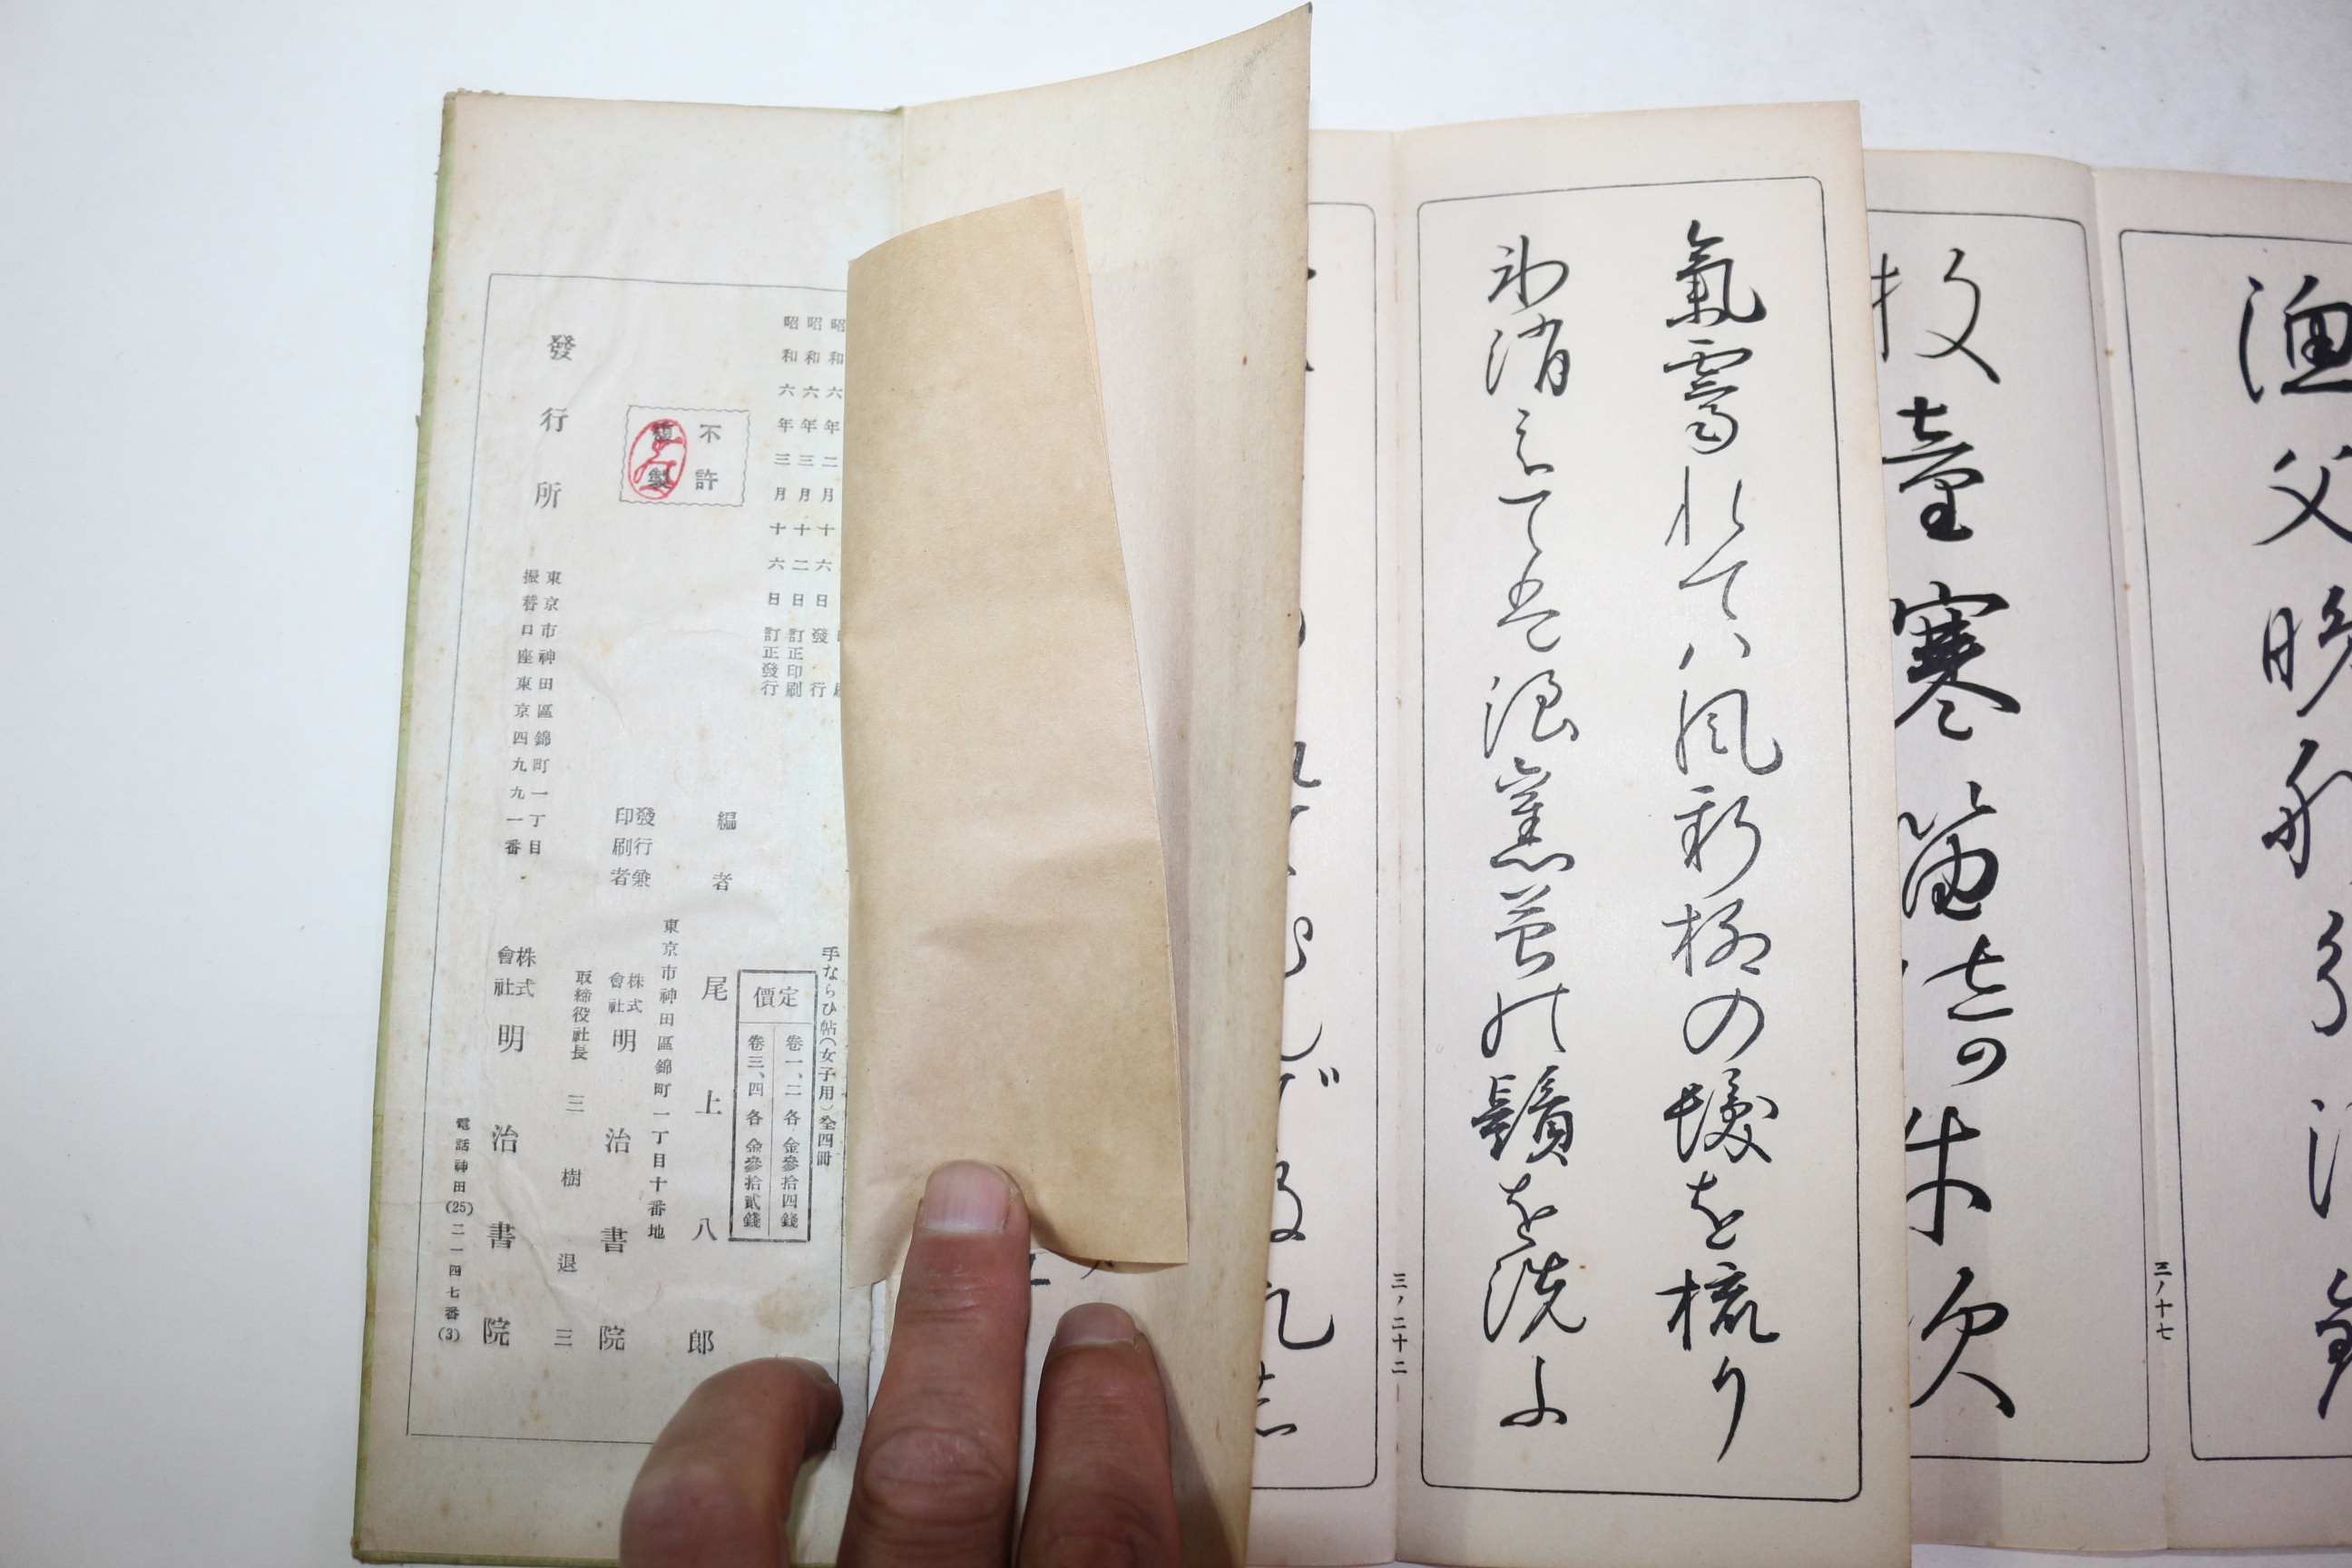 漁父晩
三ノ十七
牧童寒笛倚牛吹
氣霽れてハ風新柳の髮を梳り
氷消えては浪舊苔の鬚を洗ふ
三ノ二十二
昭和六年二月十六日發行
昭和六年三月十二日訂正印刷
昭和六年三月十六日訂正發行
手ならひ帖(女子用)全四冊
定價
卷一、二各金參拾四錢
卷三、四各金參拾貳錢
不許
複製
編者 尾上八郎
東京市神田區錦町一丁目十番地
發行兼印刷者 株式會社明治書院
取締役社長 三樹退三
發行所
東京市神田區錦町一丁目
振替口座東京四九九一番
株式會社明治書院
電話神田(25)二一四七番(3)